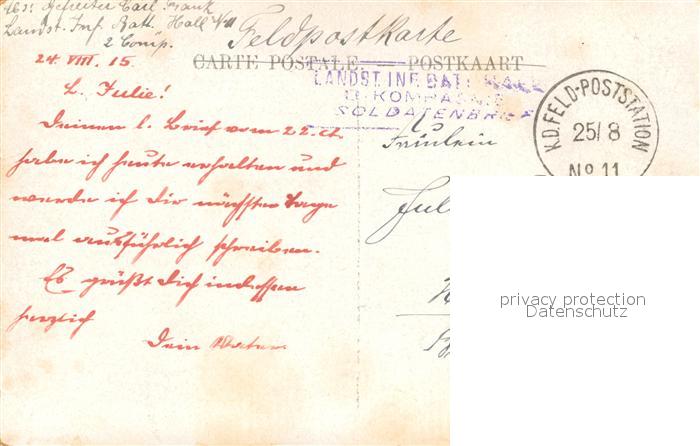 Abs. Gefreiter Carl Frank
Landst. Inf. Batt. Hall
2 Comp.
Feldpostkarte
CARTE POSTALE — POSTKAART
LANDST. INF. BATL. HALL
II. KOMPAGNIE
SOLDATENBRIEF
K.D. FELD-POSTSTATION
25/8
No 11
24. VIII. 15.
L. Julie!
Deinen l. Brief vom 22. ct.
habe ich heute erhalten und
werde ich Dir nächster Tage
mal ausführlich schreiben.
Es grüßt Dich indessen
herzlich
Dein Vater.
Fräulein
Jul
privacy protection
Datenschutz